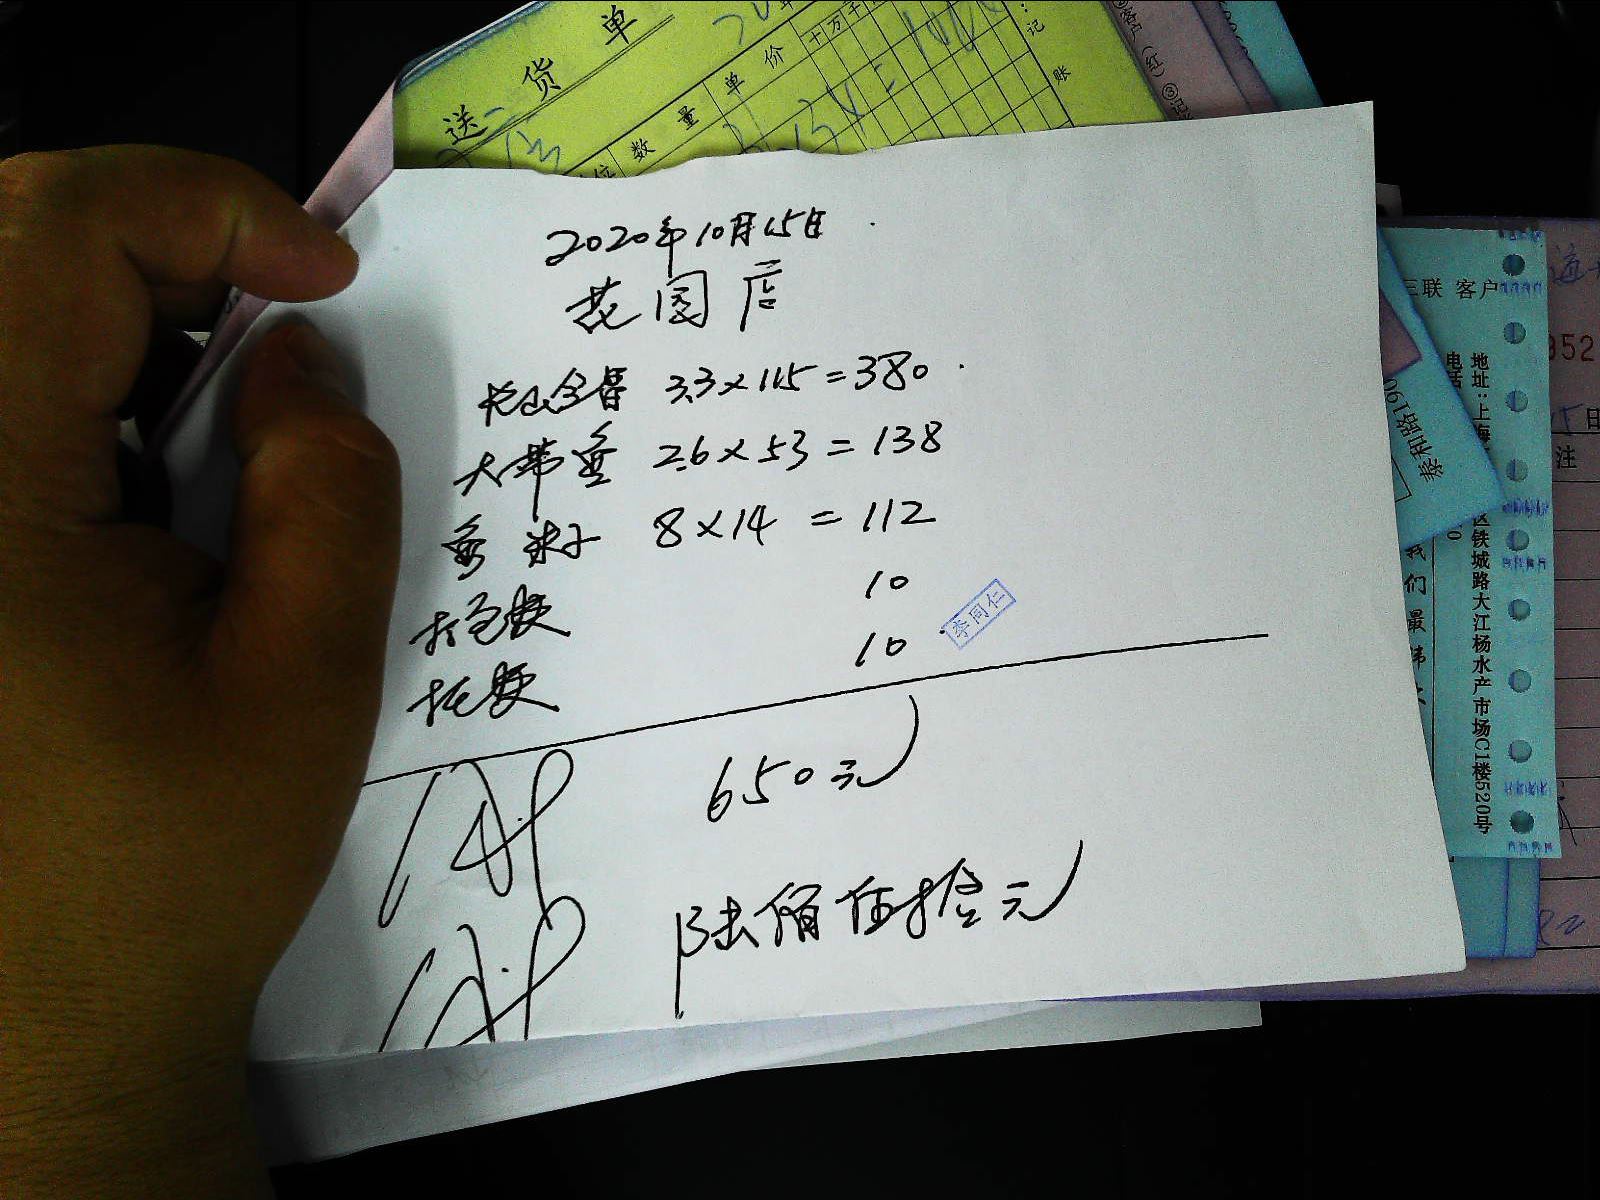 送货单
数量
单价
十万千
记
账
2020年10月15日
花园店
3.3×115=380
大带鱼 2.6×53=138
鱼米子 8×14=112
打包费 10
托费 10
李同仁
650元
陆佰伍拾元
三联 客户
地址:上海
区铁城路大江杨水产市场C1楼520号
电话
泰和路190
我们最
352
日
注